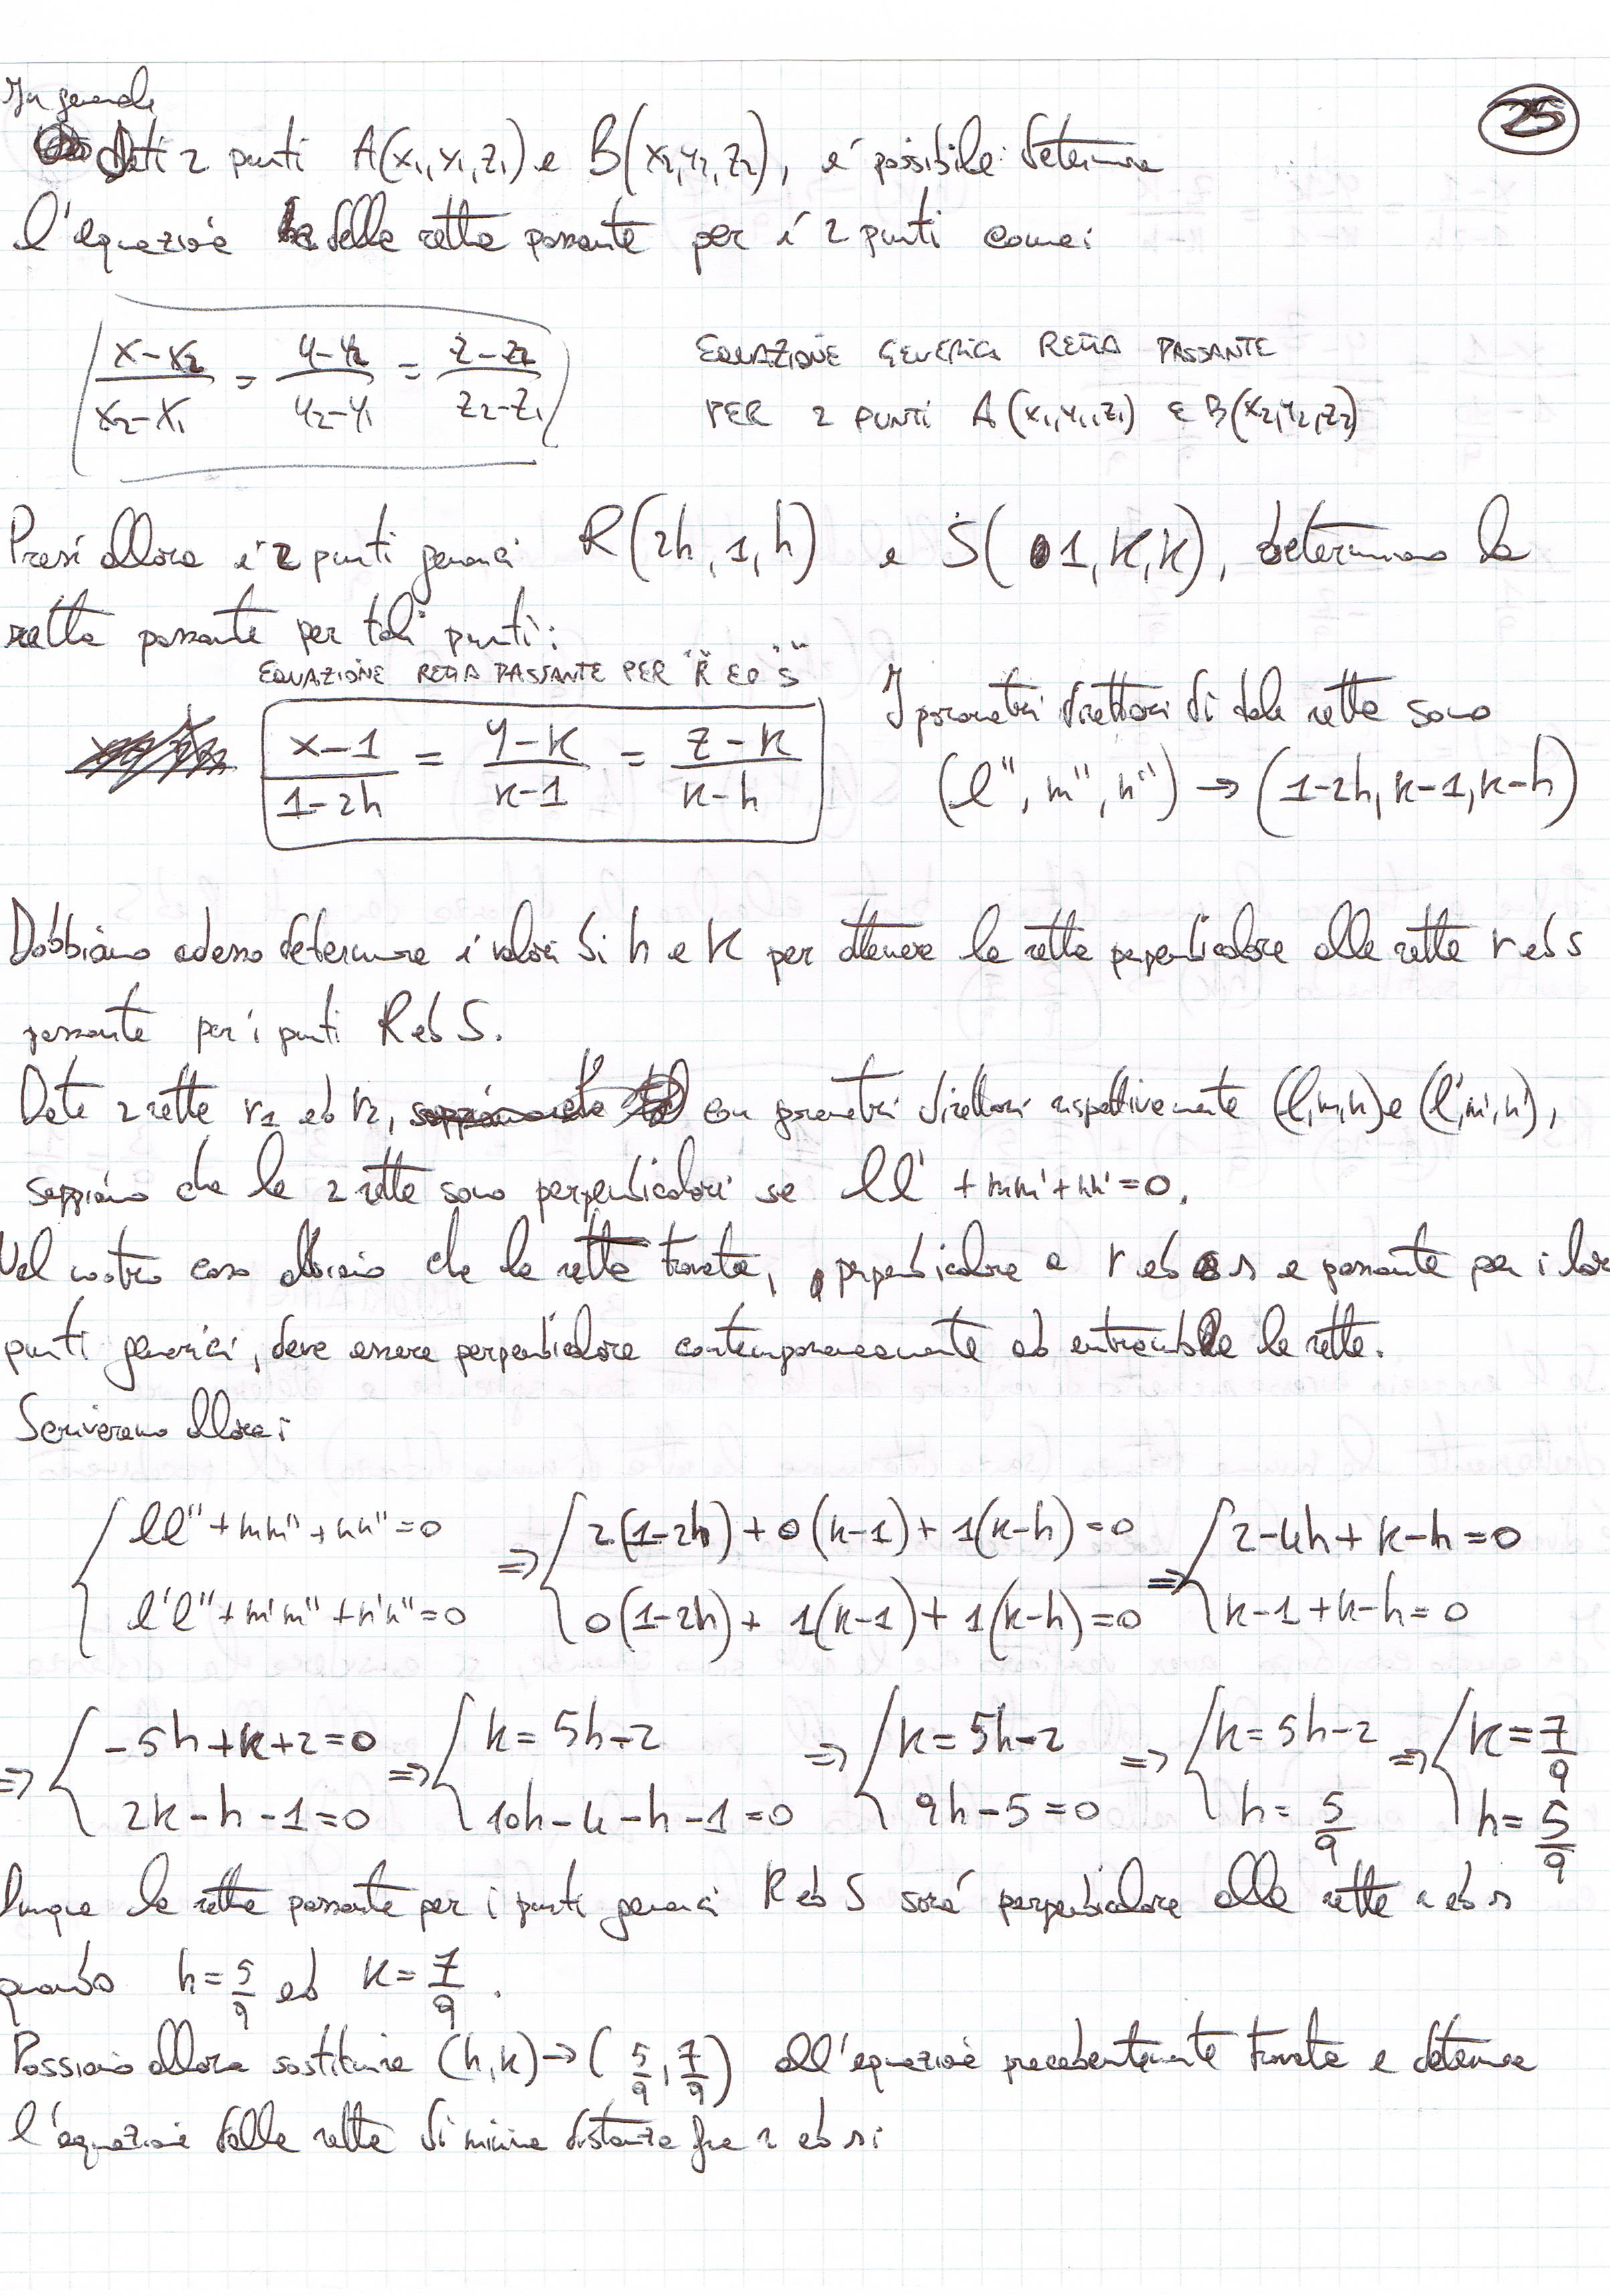 25
In generale
Dati 2 punti A(x₁,y₁,z₁) e B(x₂,y₂,z₂), e' possibile determinare
l'equazione della retta passante per i 2 punti come:
(x-x₂)/(x₂-x₁) = (y-y₂)/(y₂-y₁) = (z-z₂)/(z₂-z₁)
EQUAZIONE GENERICA RETTA PASSANTE
PER 2 PUNTI A(x₁,y₁,z₁) E B(x₂,y₂,z₂)
Presi allora i 2 punti generici R(2h,1,h) e S(1,k,k), determiniamo la
retta passante per tali punti:
EQUAZIONE RETTA PASSANTE PER "R" ED "S"
(x-1)/(1-2h) = (y-k)/(k-1) = (z-k)/(k-h)
I parametri direttori di tale retta sono
(l'',m'',n'') → (1-2h,k-1,k-h)
Dobbiamo adesso determinare i valori di h e k per ottenere la retta perpendicolare alle rette r ed s
passante per i punti R ed S.
Date 2 rette r₁ ed r₂, con parametri direttori rispettivamente (l,m,n) e (l',m',n'),
sappiamo che le 2 rette sono perpendicolari se ll'+mm'+nn'=0.
Nel nostro caso abbiamo che la retta trovata, perpendicolare a r ed s e passante per i loro
punti generici, deve essere perpendicolare contemporaneamente ad entrambe le rette.
Scriveremo allora:
{ ll''+mm''+nn''=0 ⇒ { 2(1-2h)+0(k-1)+1(k-h)=0 ⇒ { 2-4h+k-h=0
{ l'l''+m'm''+n'n''=0 { 0(1-2h)+1(k-1)+1(k-h)=0 { k-1+k-h=0
⇒ { -5h+k+2=0 ⇒ { k=5h-2 ⇒ { k=5h-2 ⇒ { k=5h-2 ⇒ { k=7/9
{ 2k-h-1=0 { 10h-4-h-1=0 { 9h-5=0 { h=5/9 { h=5/9
Dunque la retta passante per i punti generici R ed S sará perpendicolare alle rette r ed s
quando h=5/9 ed k=7/9.
Possiamo allora sostituire (h,k)→(5/9,7/9) all'equazione precedentemente trovata e determinare
l'equazione della retta di minima distanza fra r ed s: